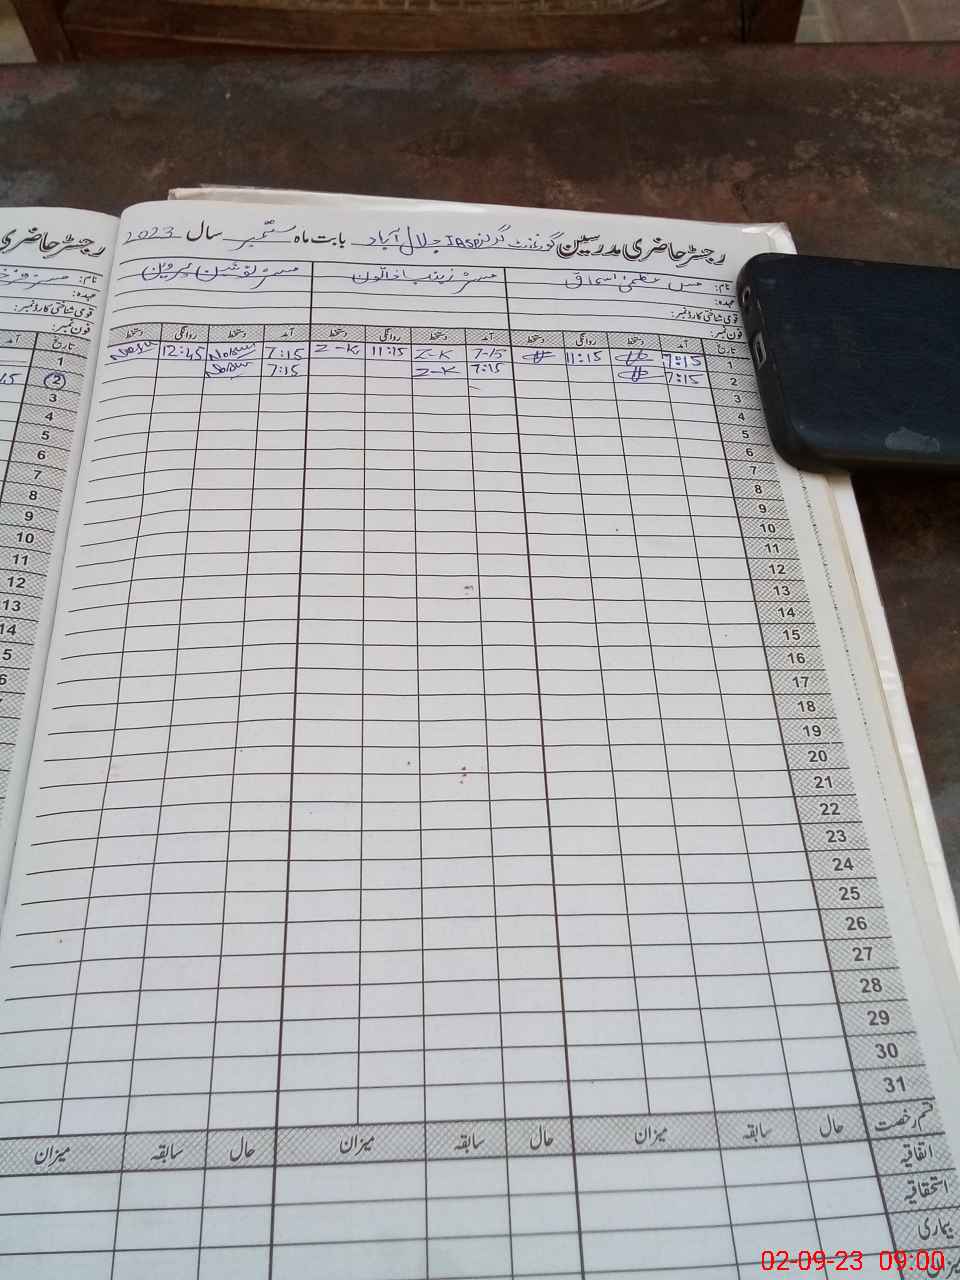 رجسٹر حاضری مدرسین گورنمنٹ گرلز جلال آباد بابت ماہ ستمبر سال 2023
رجسٹر حاضری
نام: مس عظمیٰ اسحاق مسز زینب خاتون مسز نوشین پروین
عہدہ:
قومی شناختی کارڈ نمبر:
فون نمبر:
تاریخ آمد دستخط روانگی دستخط آمد دستخط روانگی دستخط آمد دستخط روانگی دستخط
1 7:15 11:15 7-15 Z-K 11:15 Z-K 7:15 12:45
2 7:15 7:15 Z-K 7:15
3
4
5
6
7
8
9
10
11
12
13
14
15
16
17
18
19
20
21
22
23
24
25
26
27
28
29
30
31
قسم رخصت حال سابقہ میزان حال سابقہ میزان حال سابقہ میزان
اتفاقیہ
استحقاقیہ
بیماری
میزان
نام:
عہدہ:
قومی شناختی کارڈ نمبر:
فون نمبر:
تاریخ آمد
1
2
3
4
5
6
7
8
9
10
11
12
13
14
02-09-23 09:00